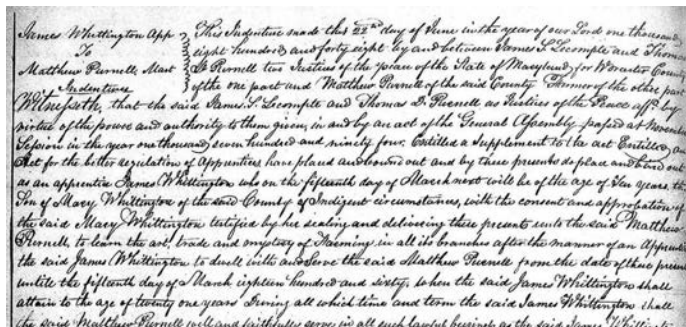 James Whittington App
To
Matthew Purnell, Mast
Indenture
This Indenture made this 22nd day of June in the year of our Lord one thousand
eight hundred and forty eight by and between James S. Lecompte and Thomas
D. Purnell two Justices of the peace of the State of Maryland, for Worcester County
of the one part and Matthew Purnell of the said County Farmer of the other part
Witnesseth, that the said James S. Lecompte and Thomas D. Purnell as Justices of the Peace affd. by
virtue of the power and authority to them given, in and by an act of the General Assembly passed at November
Session in the year one thousand, seven hundred and ninety four, Entitled a Supplement to the act Entitled, an
Act for the better regulation of Apprentices have placed and bound out and by these presents do place and bind out
as an apprentice James Whittington who on the fifteenth day of March next will be of the age of Ten years, the
Son of Mary Whittington of the said County of Indigent circumstances, with the consent and approbation of
the said Mary Whittington testified by her sealing and delivering these presents unto the said Matthew
Purnell, to learn the art, trade and mystery of Farming in all its branches after the manner of an Apprentice
the said James Whittington to dwell with and Serve the said Matthew Purnell from the date of these presents
untill the fifteenth day of March eighteen hundred and sixty, when the said James Whittington shall
attain to the age of twenty one years During all which time and term the said James Whittington shall
the said Matthew Purnell well and faithfully serve in all such lawful business as the said James Whittington